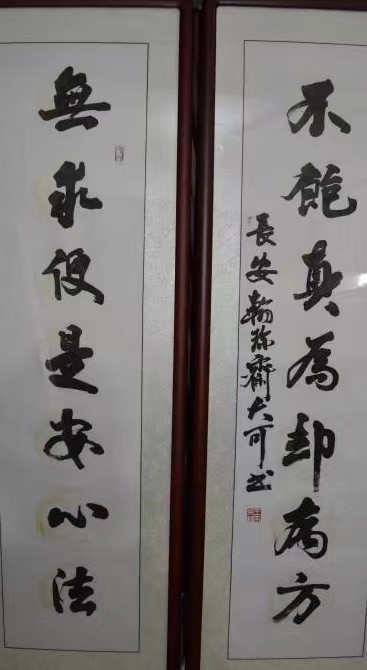 無求便是安心法
不飽真為却病方
長安翰珍齋大可书